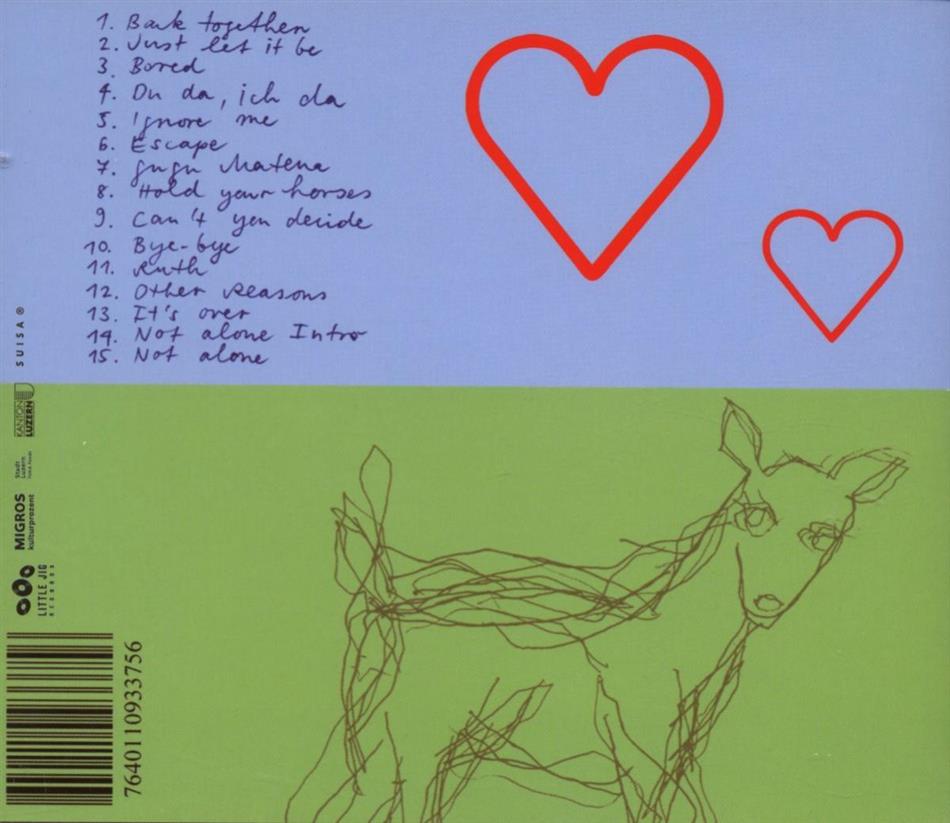 1. Back together
2. Just let it be
3. Bored
4. Du da, ich da
5. Ignore me
6. Escape
7. gugu Matena
8. Hold your horses
9. Can't you decide
10. Bye-bye
11. Ruth
12. Other Reasons
13. It's over
14. Not alone Intro
15. Not alone
SUISA ®
KANTON
LUZERN
Stadt
Luzern
MIGROS
kulturprozent
LITTLE JIG
RECORDS
7640110933756